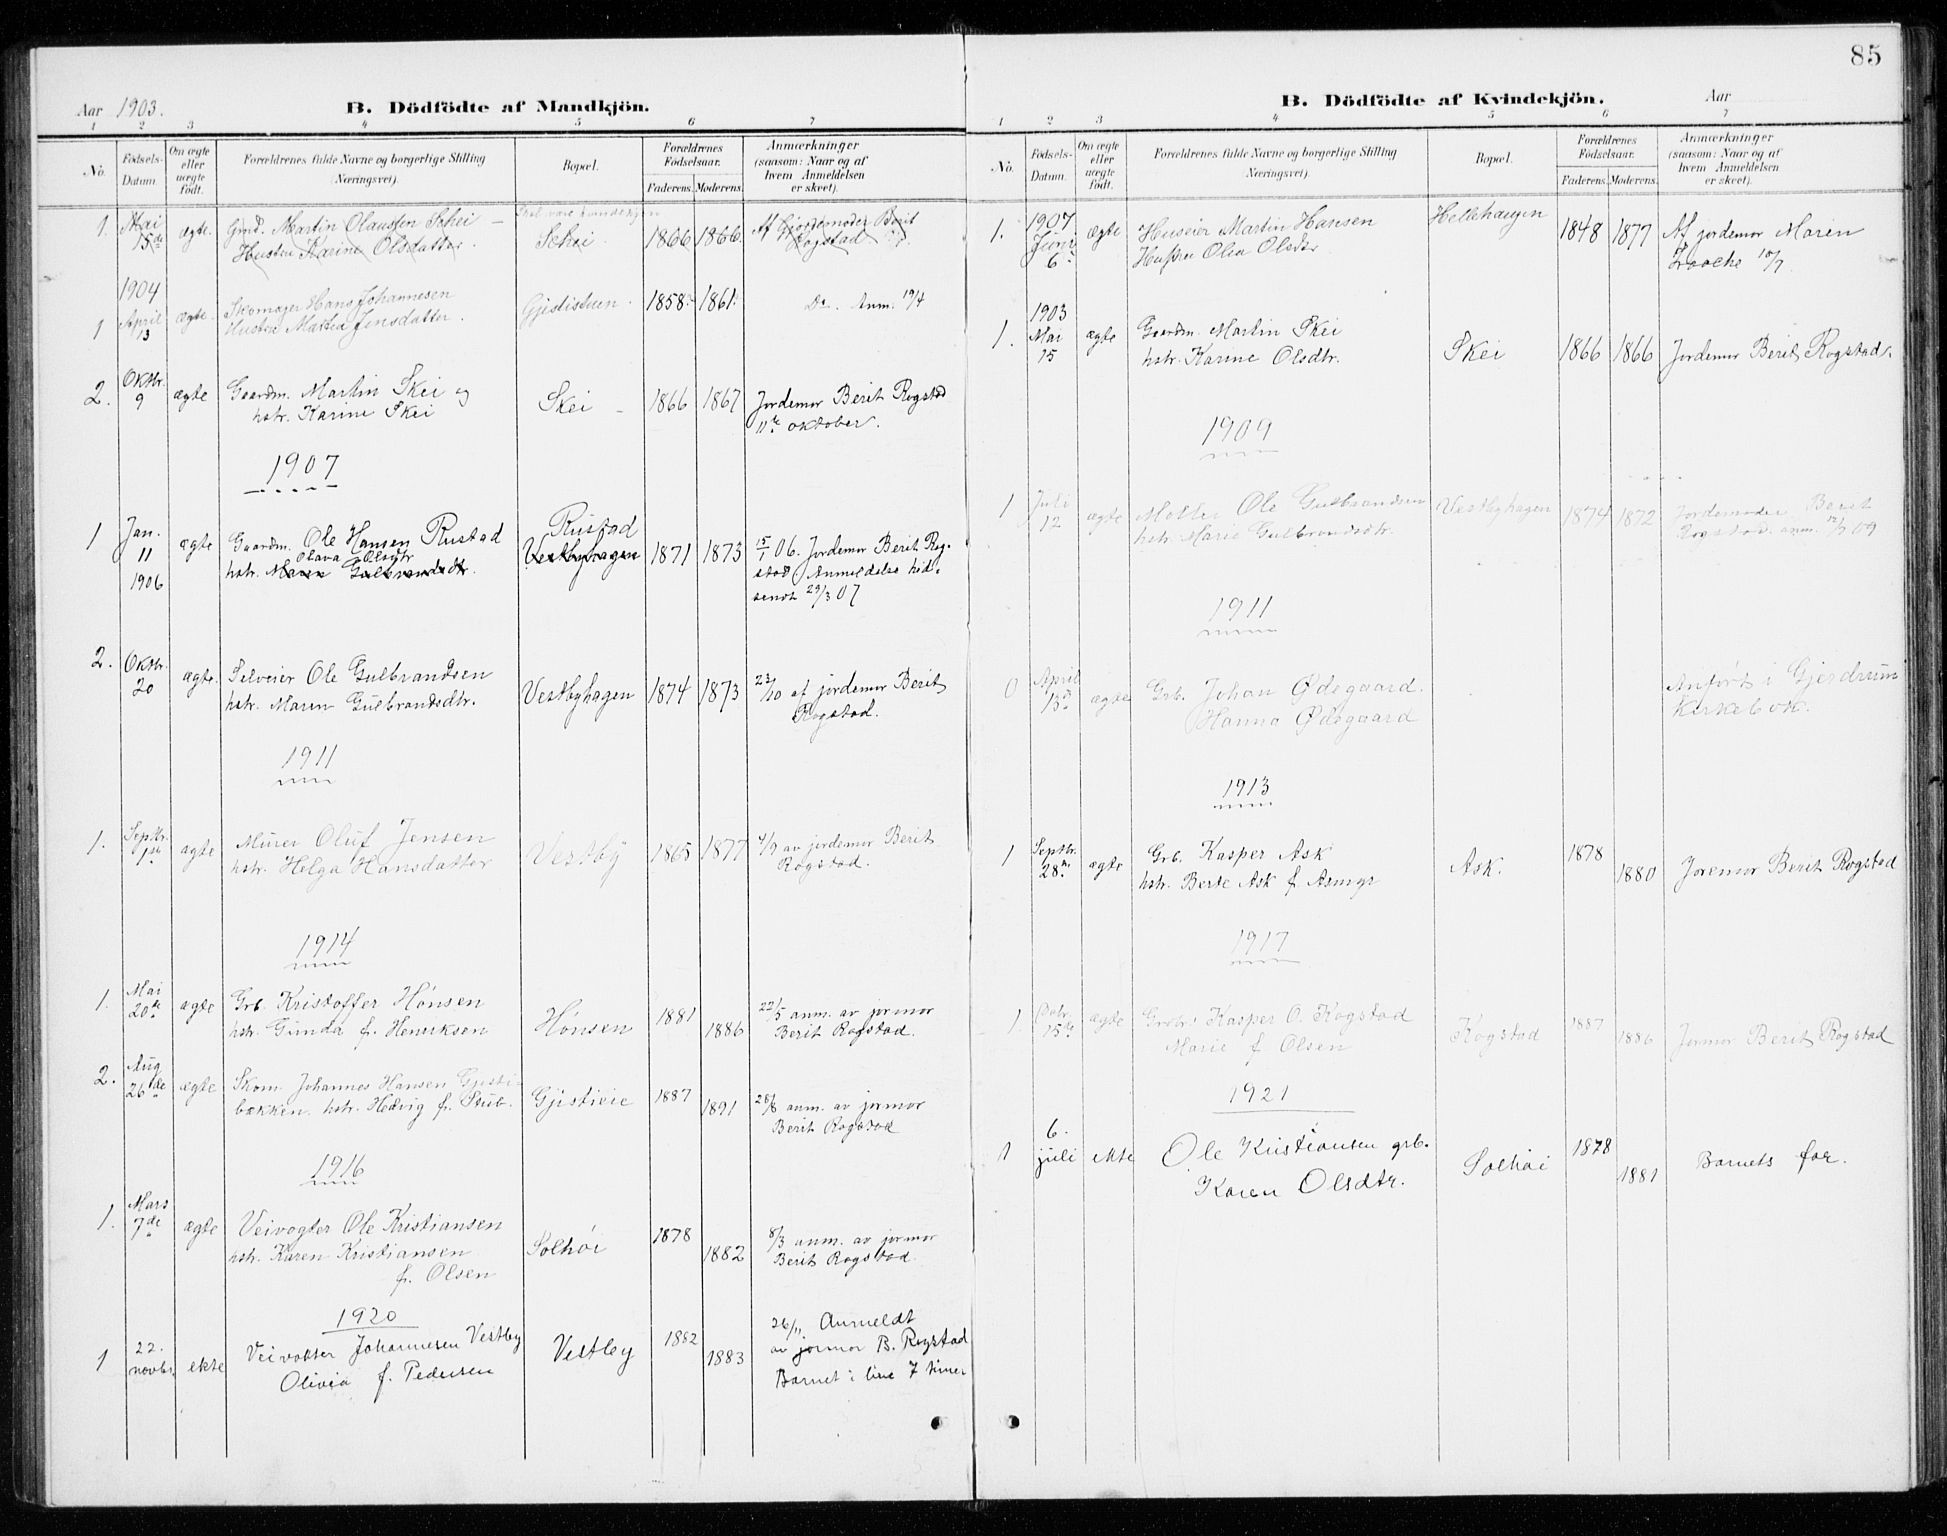 85
Aar 1903.
B. Dödfödte af Mandkjön.
1 2 3 4 5 6 7
No.
Födsels-
Datum.
Om ægte
eller
uægte
födt.
Forældrenes fulde Navne og borgerlige Stilling
(Næringsvei).
Bopæl.
Forældrenes
Födselsaar.
Faderens. Moderens.
Anmærkninger
(saasom: Naar og af
hvem Anmeldelsen
er skeet).
1. Mai 15de ægte. Grd. Martin Olaussen Schei –
Hustru Karine Olsdatter.
Skal være kvindekjøn
Schei 1866 1866. Af Gjordemoder Berit
Rogstad
1904
1 April 13 ægte. Skomager Hans Johannesen
Hustru Martea Jensdatter.
Gjestistuen. 1858. 1861. Do. Anm. 19/4
2. Oktbr. 9 ægte Gaardm. Martin Skei og
hstr. Karine Skei
Skei – 1866 1867 Jordemor Berit Rogstad
11te oktober.
1907
1 Jan. 11 1906 ægte Gaardm. Ole Hansen Rustad
Olava Olsdtr
hstr. Maren Gulbrandsdtr.
Rustad
Vestbyhagen 1871 1873 15/1 06. Jordemor Berit Rog-
stad Anmeldelse hid-
sendt 29/3 07
2. Oktbr. 20 ægte. Selveier Ole Gulbrandsen
hstr. Maren Gulbrandsdtr.
Vestbyhagen 1874 1873 23/10 af jordemor Berit
Rogstad.
1911
1. Septbr. 1ste ægte Murer Oluf Jensen
hstr. Helga Hansdatter
Vestby 1865 1877 4/9 av jordemor Berit
Rogstad.
1914
1. Mai 20de ægte Grb. Kristoffer Hönsen
hstr. Gunda f. Henriksen
Hönsen 1881 1886 22/5 anm. av jormor
Berit Rogstad.
2. Aug 26de ægte Skom. Johannes Hansen Gjesti-
bakken. hstr. Hedvig f. Stub.
Gjestieie 1887 1891 28/8 anm. av jormor
Berit Rogstad
1916
1. Mars 7de ægte Veivogter Ole Kristiansen
hstr. Karen Kristiansen
f. Olsen
Solhöi 1878 1882 8/3 anm. av jormor
Berit Rogstad.
1920
1 22. novbr. ekte Veivokter Johannesen Vestby
Olivia f. Pedersen
Vestby 1882 1883 26/11. Anmeldt
av jormor B. Rogstad
Barnet i live 7 timer
B. Dödfödte af Kvindekjön.
Aar
1 2 3 4 5 6 7
No.
Födsels-
Datum.
Om ægte
eller
uægte
födt.
Forældrenes fulde Navne og borgerlige Stilling
(Næringsvei).
Bopæl.
Forældrenes
Födselsaar.
Faderens. Moderens.
Anmærkninger
(saasom: Naar og af
hvem Anmeldelsen
er skeet).
1. 1907 Juni 6 ægte Huseier Martin Hansen
Hustru Olea Olsdtr
Hellehaugen 1848 1877 Af jordemor Maren
10/7
1903
1. Mai 15 ægte Gaardm. Martin Skei
hstr. Karine Olsdtr.
Skei 1866 1866 Jordemor Berit Rogstad.
1909
1 Juli 12 ægte Møller Ole Gulbrandsen
hstr. Marie Gulbrandsdtr.
Vestbyhagen 1874 1872 Jordemoder Berit
Rogstad. anm. 09
1911
0 April 13de ægte Grb. Johan Ødegaard.
Hanna Ødegaard
Anført i Gjerdrum
kirkebok.
1913
1 Septbr. 28de ægte Grb. Kasper Ask
hstr. Berte Ask f. Asmyr
Ask. 1878 1880 Joremor Berit Rogstad
1917
1 15de ægte Grbr. Kasper O. Rogstad
Marie f Olsen
Rogstad 1887 1886 Jormor Berit Rogstad
1921
1 6. juli ekte Ole Kristiansen grb.
Karen Olsdtr.
Solhöi 1878 1881 Barnets far.